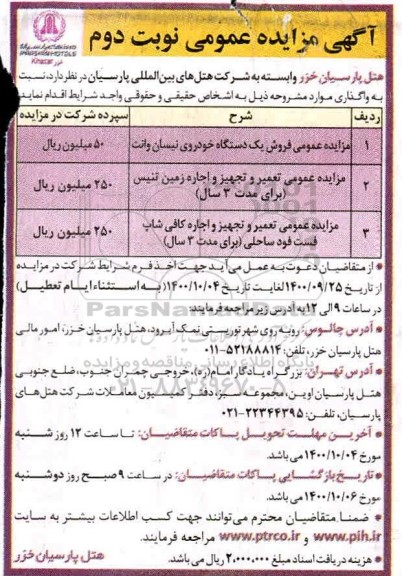 آگهی مزایده عمومی نوبت دوم
PARSIAN HOTELS
هتل پارسیان خزر وابسته به شرکت هتل‌های بین‌المللی پارسیان در نظر دارد، نسبت
به واگذاری موارد مشروحه ذیل به اشخاص حقیقی و حقوقی واجد شرایط اقدام نماید
ردیف شرح سپرده شرکت در مزایده
۱ مزایده عمومی فروش یک دستگاه خودروی نیسان وانت ۵۰ میلیون ریال
۲ مزایده عمومی تعمیر و تجهیز و اجاره زمین تنیس ۲۵۰ میلیون ریال
(برای مدت ۳ سال)
۳ مزایده عمومی تعمیر و تجهیز و اجاره کافی شاپ ۲۵۰ میلیون ریال
فست فود ساحلی (برای مدت ۳ سال)
● از متقاضیان دعوت به عمل می‌آید جهت اخذ فرم شرایط شرکت در مزایده
از تاریخ ۱۴۰۰/۰۹/۲۵ لغایت تاریخ ۱۴۰۰/۱۰/۰۴ (به استثناء ایام تعطیل)
در ساعات ۹ الی ۱۲ به آدرس زیر مراجعه فرمایند:
● آدرس چالوس: روبه روی شهر توریستی نمک آبرود، هتل پارسیان خزر، امور مالی
هتل پارسیان خزر، تلفن: ۵۲۱۸۸۸۱۴-۰۱۱
● آدرس تهران: بزرگراه یادگار امام(ره)، خروجی چمران جنوب، ضلع جنوبی
هتل پارسیان اوین، مجموعه سبز، دفتر کمیسیون معاملات شرکت هتل‌های
پارسیان، تلفن: ۲۲۳۴۴۳۹۵-۰۲۱
● آخرین مهلت تحویل پاکات متقاضیان: تا ساعت ۱۲ روز شنبه
مورخ ۱۴۰۰/۱۰/۰۴ می باشد.
● تاریخ بازگشایی پاکات متقاضیان: در ساعت ۹ صبح روز دوشنبه
مورخ ۱۴۰۰/۱۰/۰۶ می باشد.
● ضمنا متقاضیان محترم می‌توانند جهت کسب اطلاعات بیشتر به سایت
www.pih.ir و www.ptrco.ir مراجعه فرمایند.
● هزینه دریافت اسناد مبلغ ۲,۰۰۰,۰۰۰ ریال می باشد.
هتل پارسیان خزر